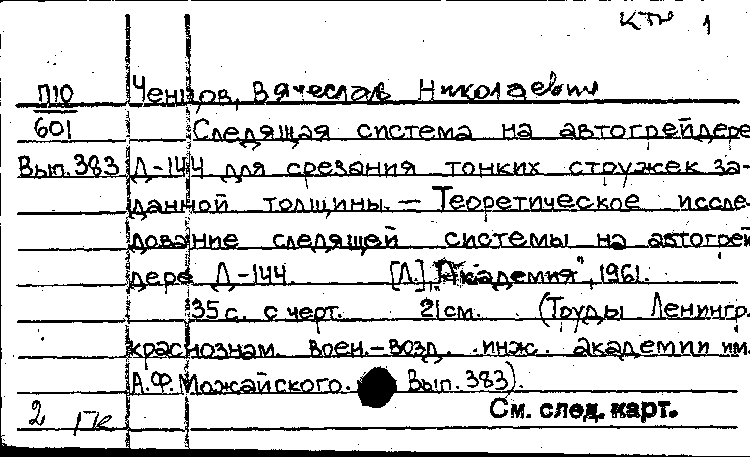 КТН 1
П10 Ченцов, Вячеслав Николаевич
601 Следящая система на автогрейдере
Вып. 383 Д-144 для срезания тонких стружек за-
данной толщины. — Теоретическое иссле-
дование следящей системы на автогрей
дере Д-144. [Л.], "Академия", 1961.
35 с. с черт. 21 см. (Труды Ленингр.
краснознам. воен.-возд. инж. академии им.
А.Ф. Можайского. Вып. 383).
2 См. след. карт.